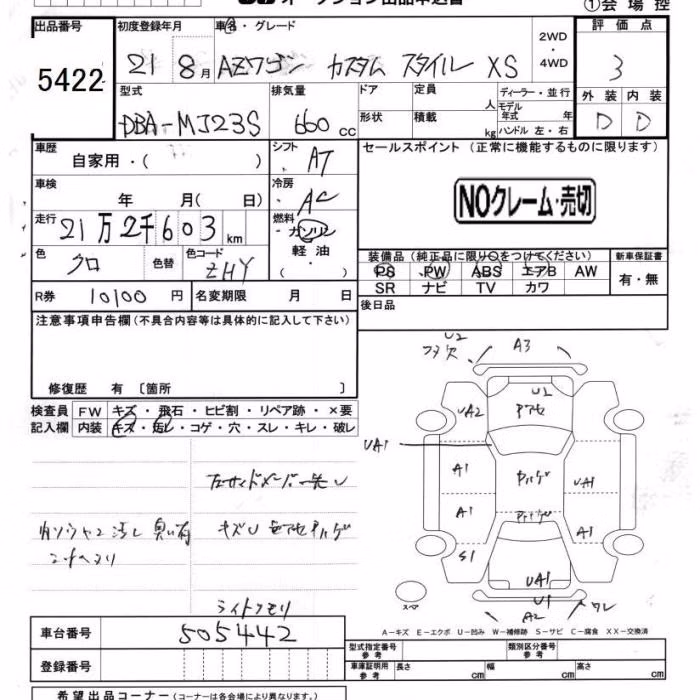 オークション出品申込書
①会場控
出品番号 初度登録年月 車名・グレード 評価点
5422 21 8月 AZワゴン カスタム スタイル XS 2WD・4WD 3
型式 排気量 ドア 定員 人 ディーラー・並行 外装 内装
DBA-MJ23S 660cc 形状 積載 kg モデル年式 年 D D
ハンドル 左・右
車歴 自家用・( ) シフト AT セールスポイント (正常に機能するものに限ります)
車検 年 月( 日) 冷房 AC NOクレーム・売切
走行 21万2千603km 燃料 ガソリン
色 クロ 色替 色コード ZHY ( 軽油 ・ ) 装備品 (純正品に限り○をつけてください) 新車保証書
PS PW ABS エアB AW 有・無
R券 10100円 名変期限 月 日 SR ナビ TV カワ
注意事項申告欄 (不具合内容等は具体的に記入して下さい) 後日品
修復歴 有 〔箇所 〕
検査員 FW キズ・飛石・ヒビ割・リペア跡・×要
記入欄 内装 キズ・汚レ・コゲ・穴・スレ・キレ・破レ
U2
A3
U1
UA2
UA1
A1 UA1
A1 A1
S1
UA1
U1
A2 ワレ
スペア
キズU
A-キズ E-エクボ U-凹み W-補修跡 S-サビ C-腐食 XX-交換済
車台番号 505442
型式指定番号 参考 類別区分番号 参考
登録番号 車庫証明用 参考 長さ cm 幅 cm 高さ cm
希望出品コーナー (コーナーは各会場により異なります。)